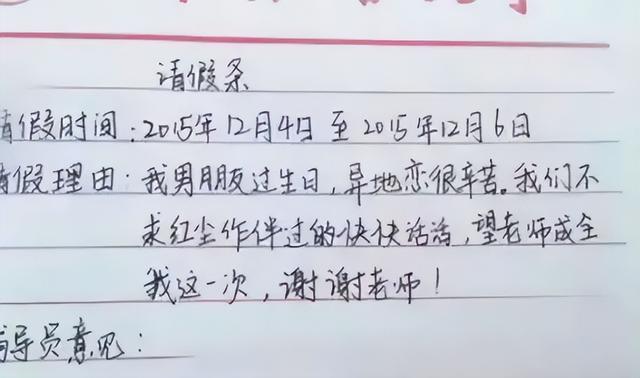 请假条
请假时间：2015年12月4日至2015年12月6日
请假理由：我男朋友过生日，异地恋很辛苦。我们不
求红尘作伴过的快快活活，望老师成全
我这一次，谢谢老师！
辅导员意见：